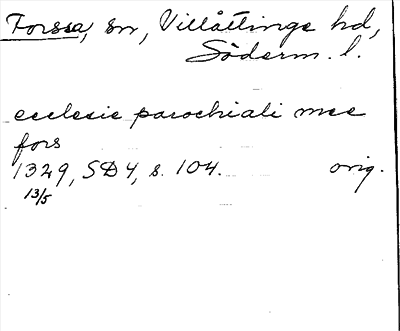 Forssa, sn, Villåttinge hd,
Söderm. l.
ecclesie parochiali mee
fors
1329, SD4, s. 104. orig.
13/5